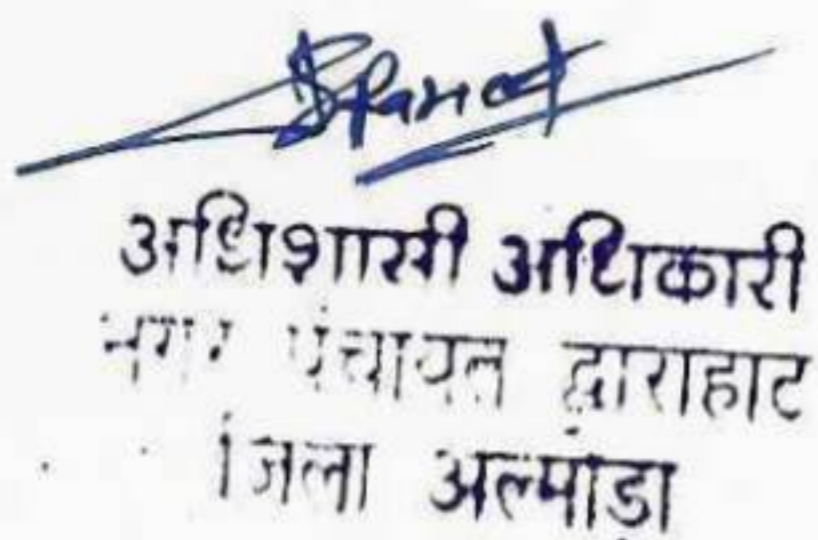 अधिशासी अधिकारी
नगर पंचायत द्वाराहाट
जिला अल्मोडा